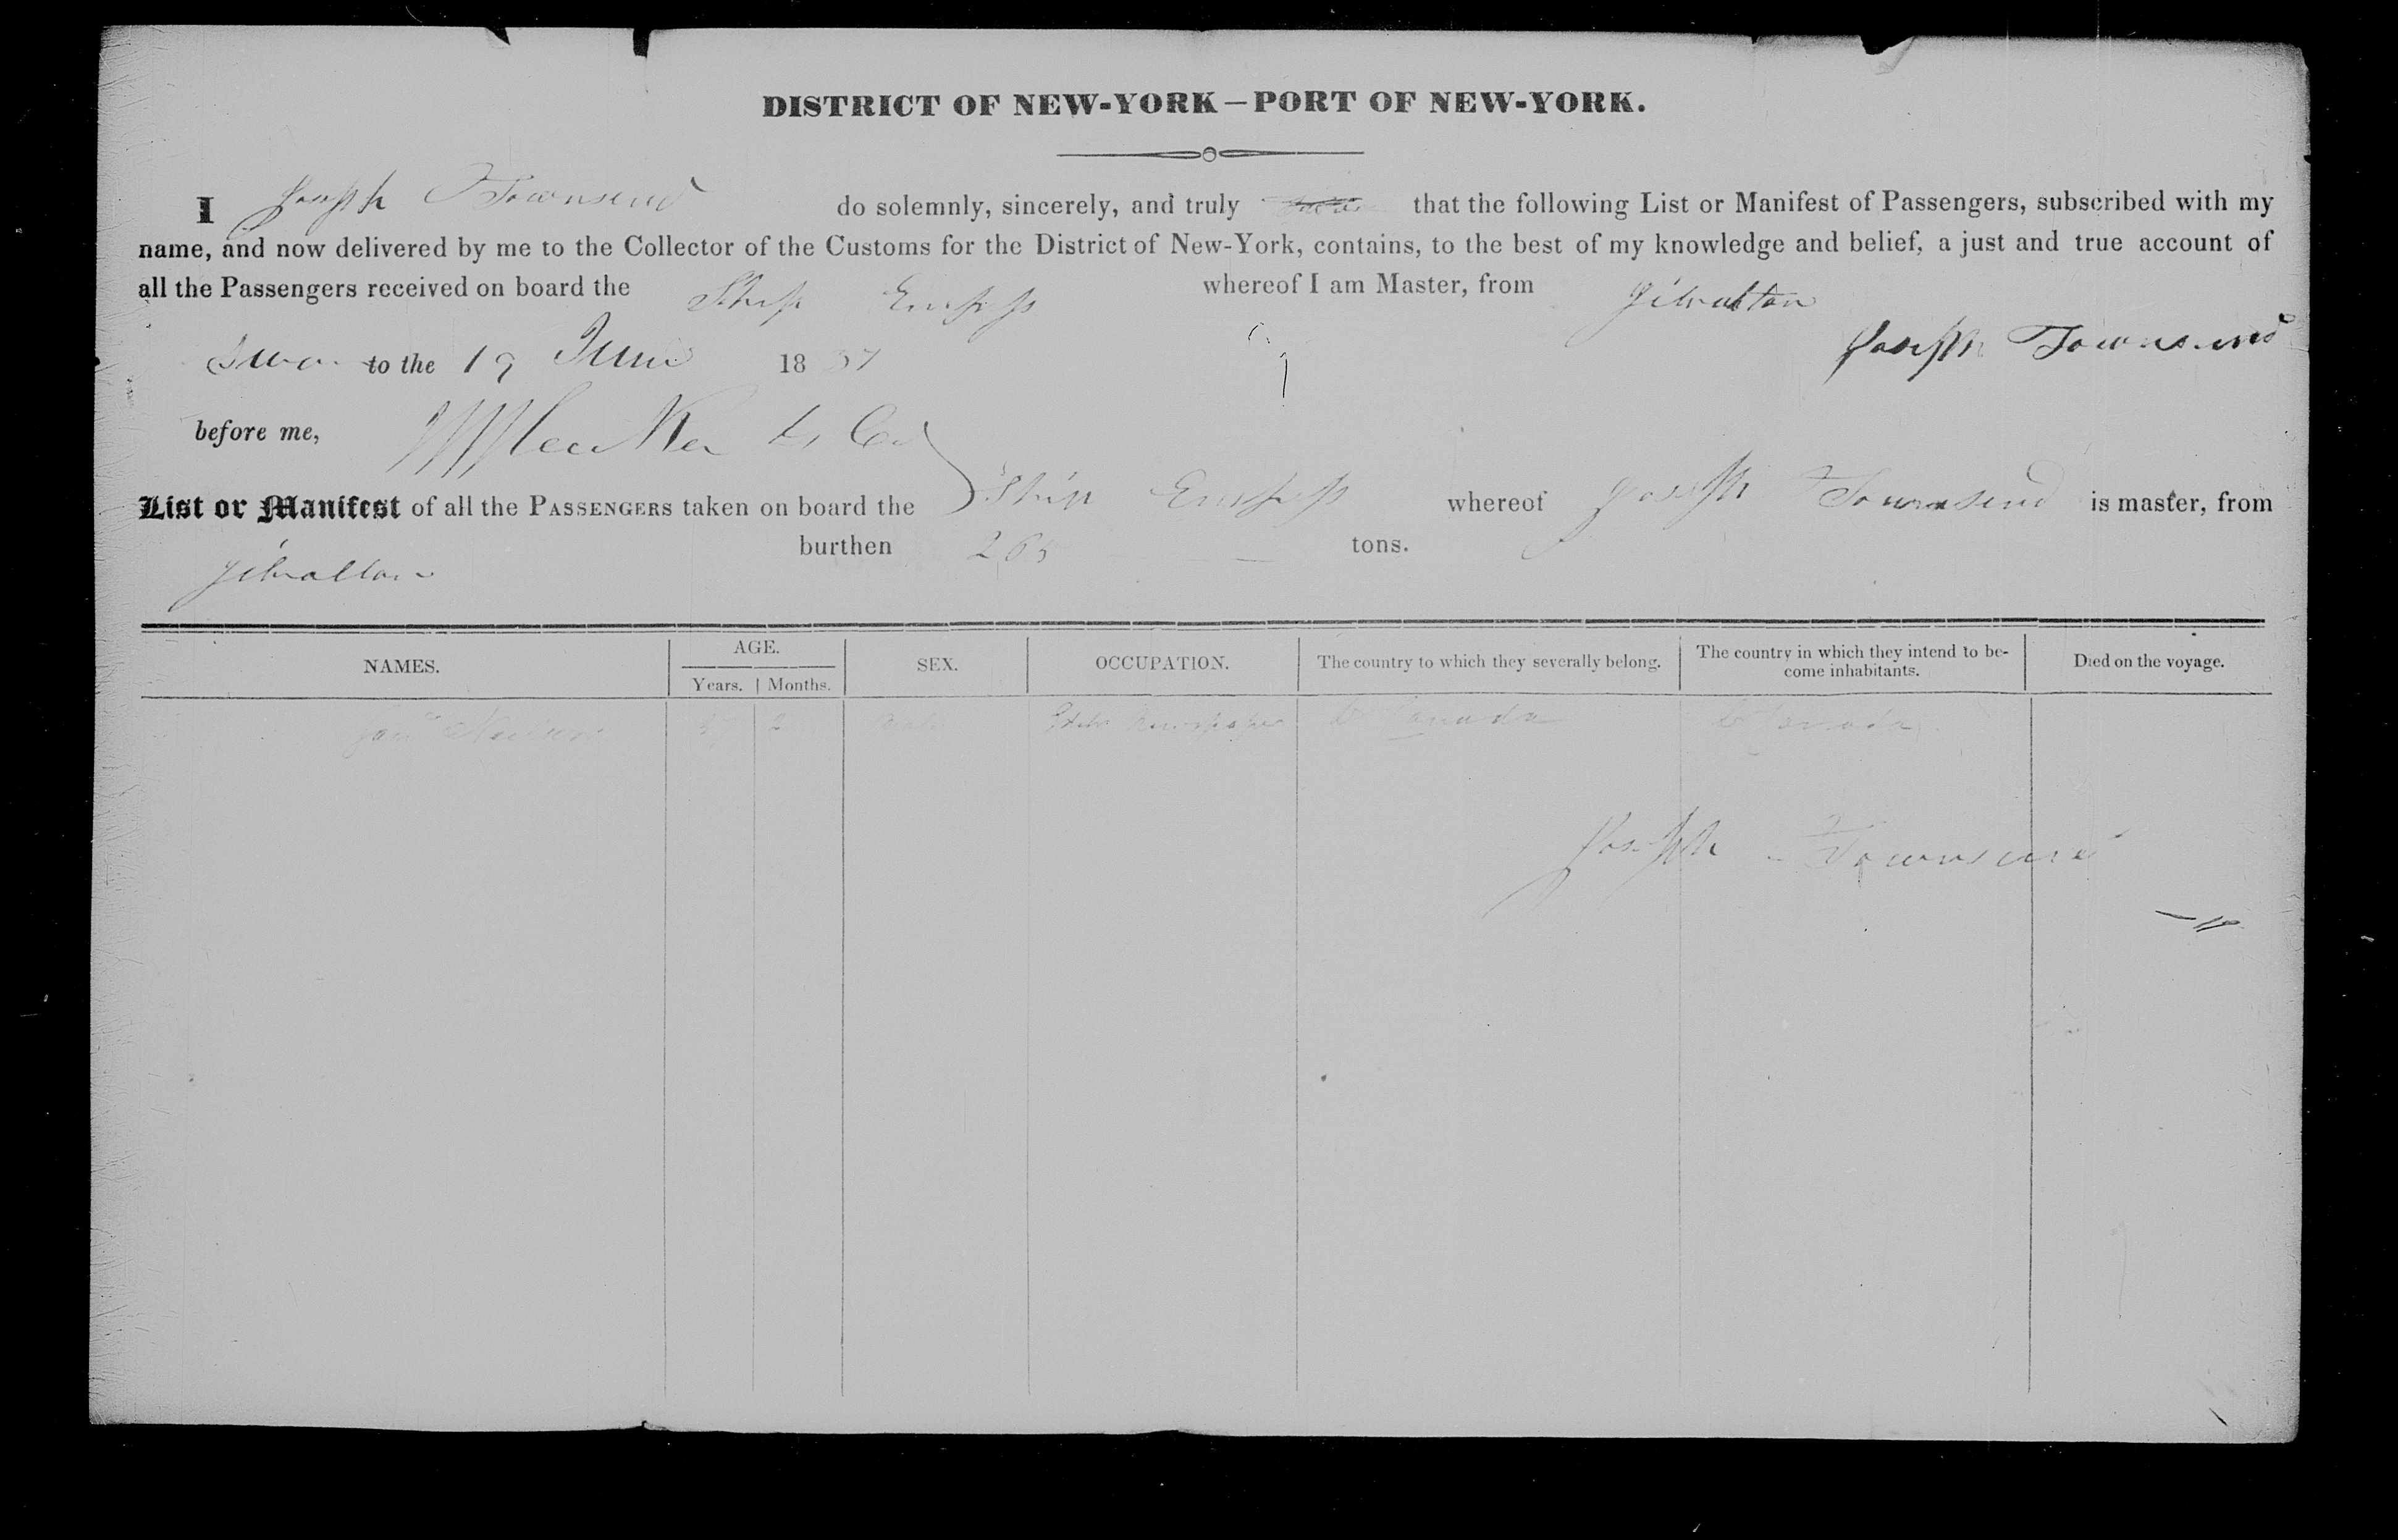 DISTRICT OF NEW-YORK — PORT OF NEW-YORK.
I Joseph Townsend do solemnly, sincerely, and truly that the following List or Manifest of Passengers, subscribed with my
name, and now delivered by me to the Collector of the Customs for the District of New-York, contains, to the best of my knowledge and belief, a just and true account of
all the Passengers received on board the Ship whereof I am Master, from Gibraltar
Joseph Townsend
to the 19 June 1837
before me,
List or Manifest of all the PASSENGERS taken on board the Ship whereof Joseph Townsend is master, from
Gibraltar burthen 265 tons.
NAMES. AGE. SEX. OCCUPATION. The country to which they severally belong. The country in which they intend to be-
come inhabitants. Died on the voyage.
Years. Months.
Canada Canada
Joseph Townsend